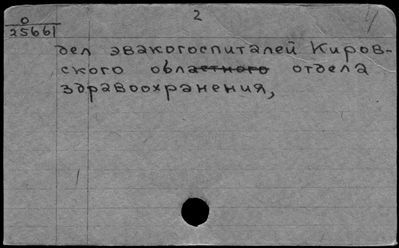 2
О
25661
дел эвакогоспиталей Киров-
ского областного отдела
здравоохранения,